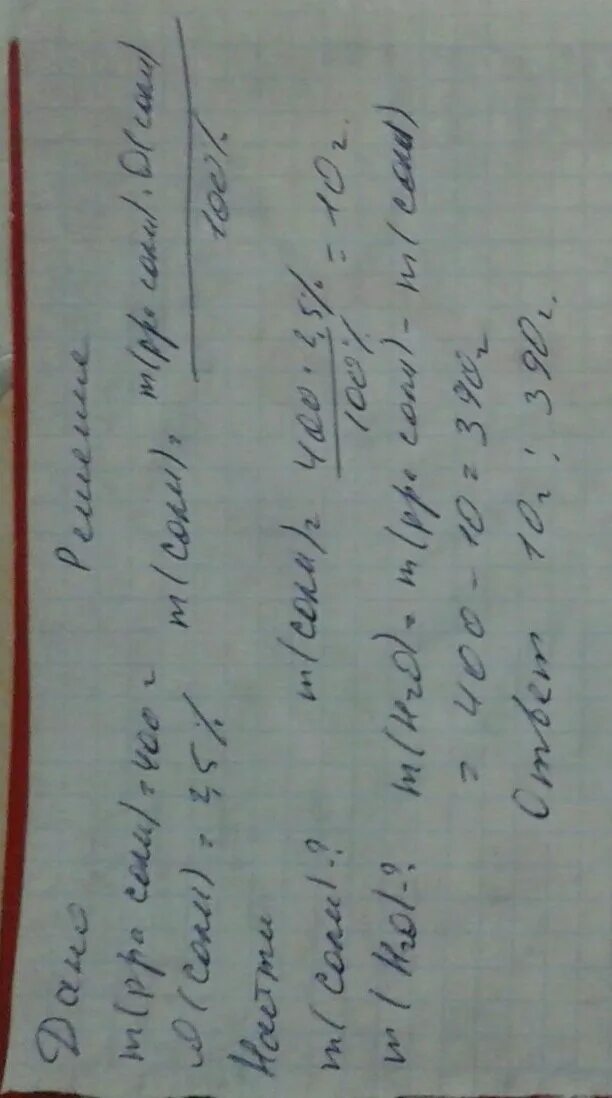 Дано
m(рра соли) = 400 г
ω(соли) = 2,5%
Найти
m(соли)-?
m(H2O)-?
Решение
m(соли) = m(рра соли)·ω(соли) / 100%
m(соли) = 400·2,5% / 100% = 10 г.
m(H2O) = m(рра соли) - m(соли)
= 400 - 10 = 390 г
Ответ 10 г; 390 г.